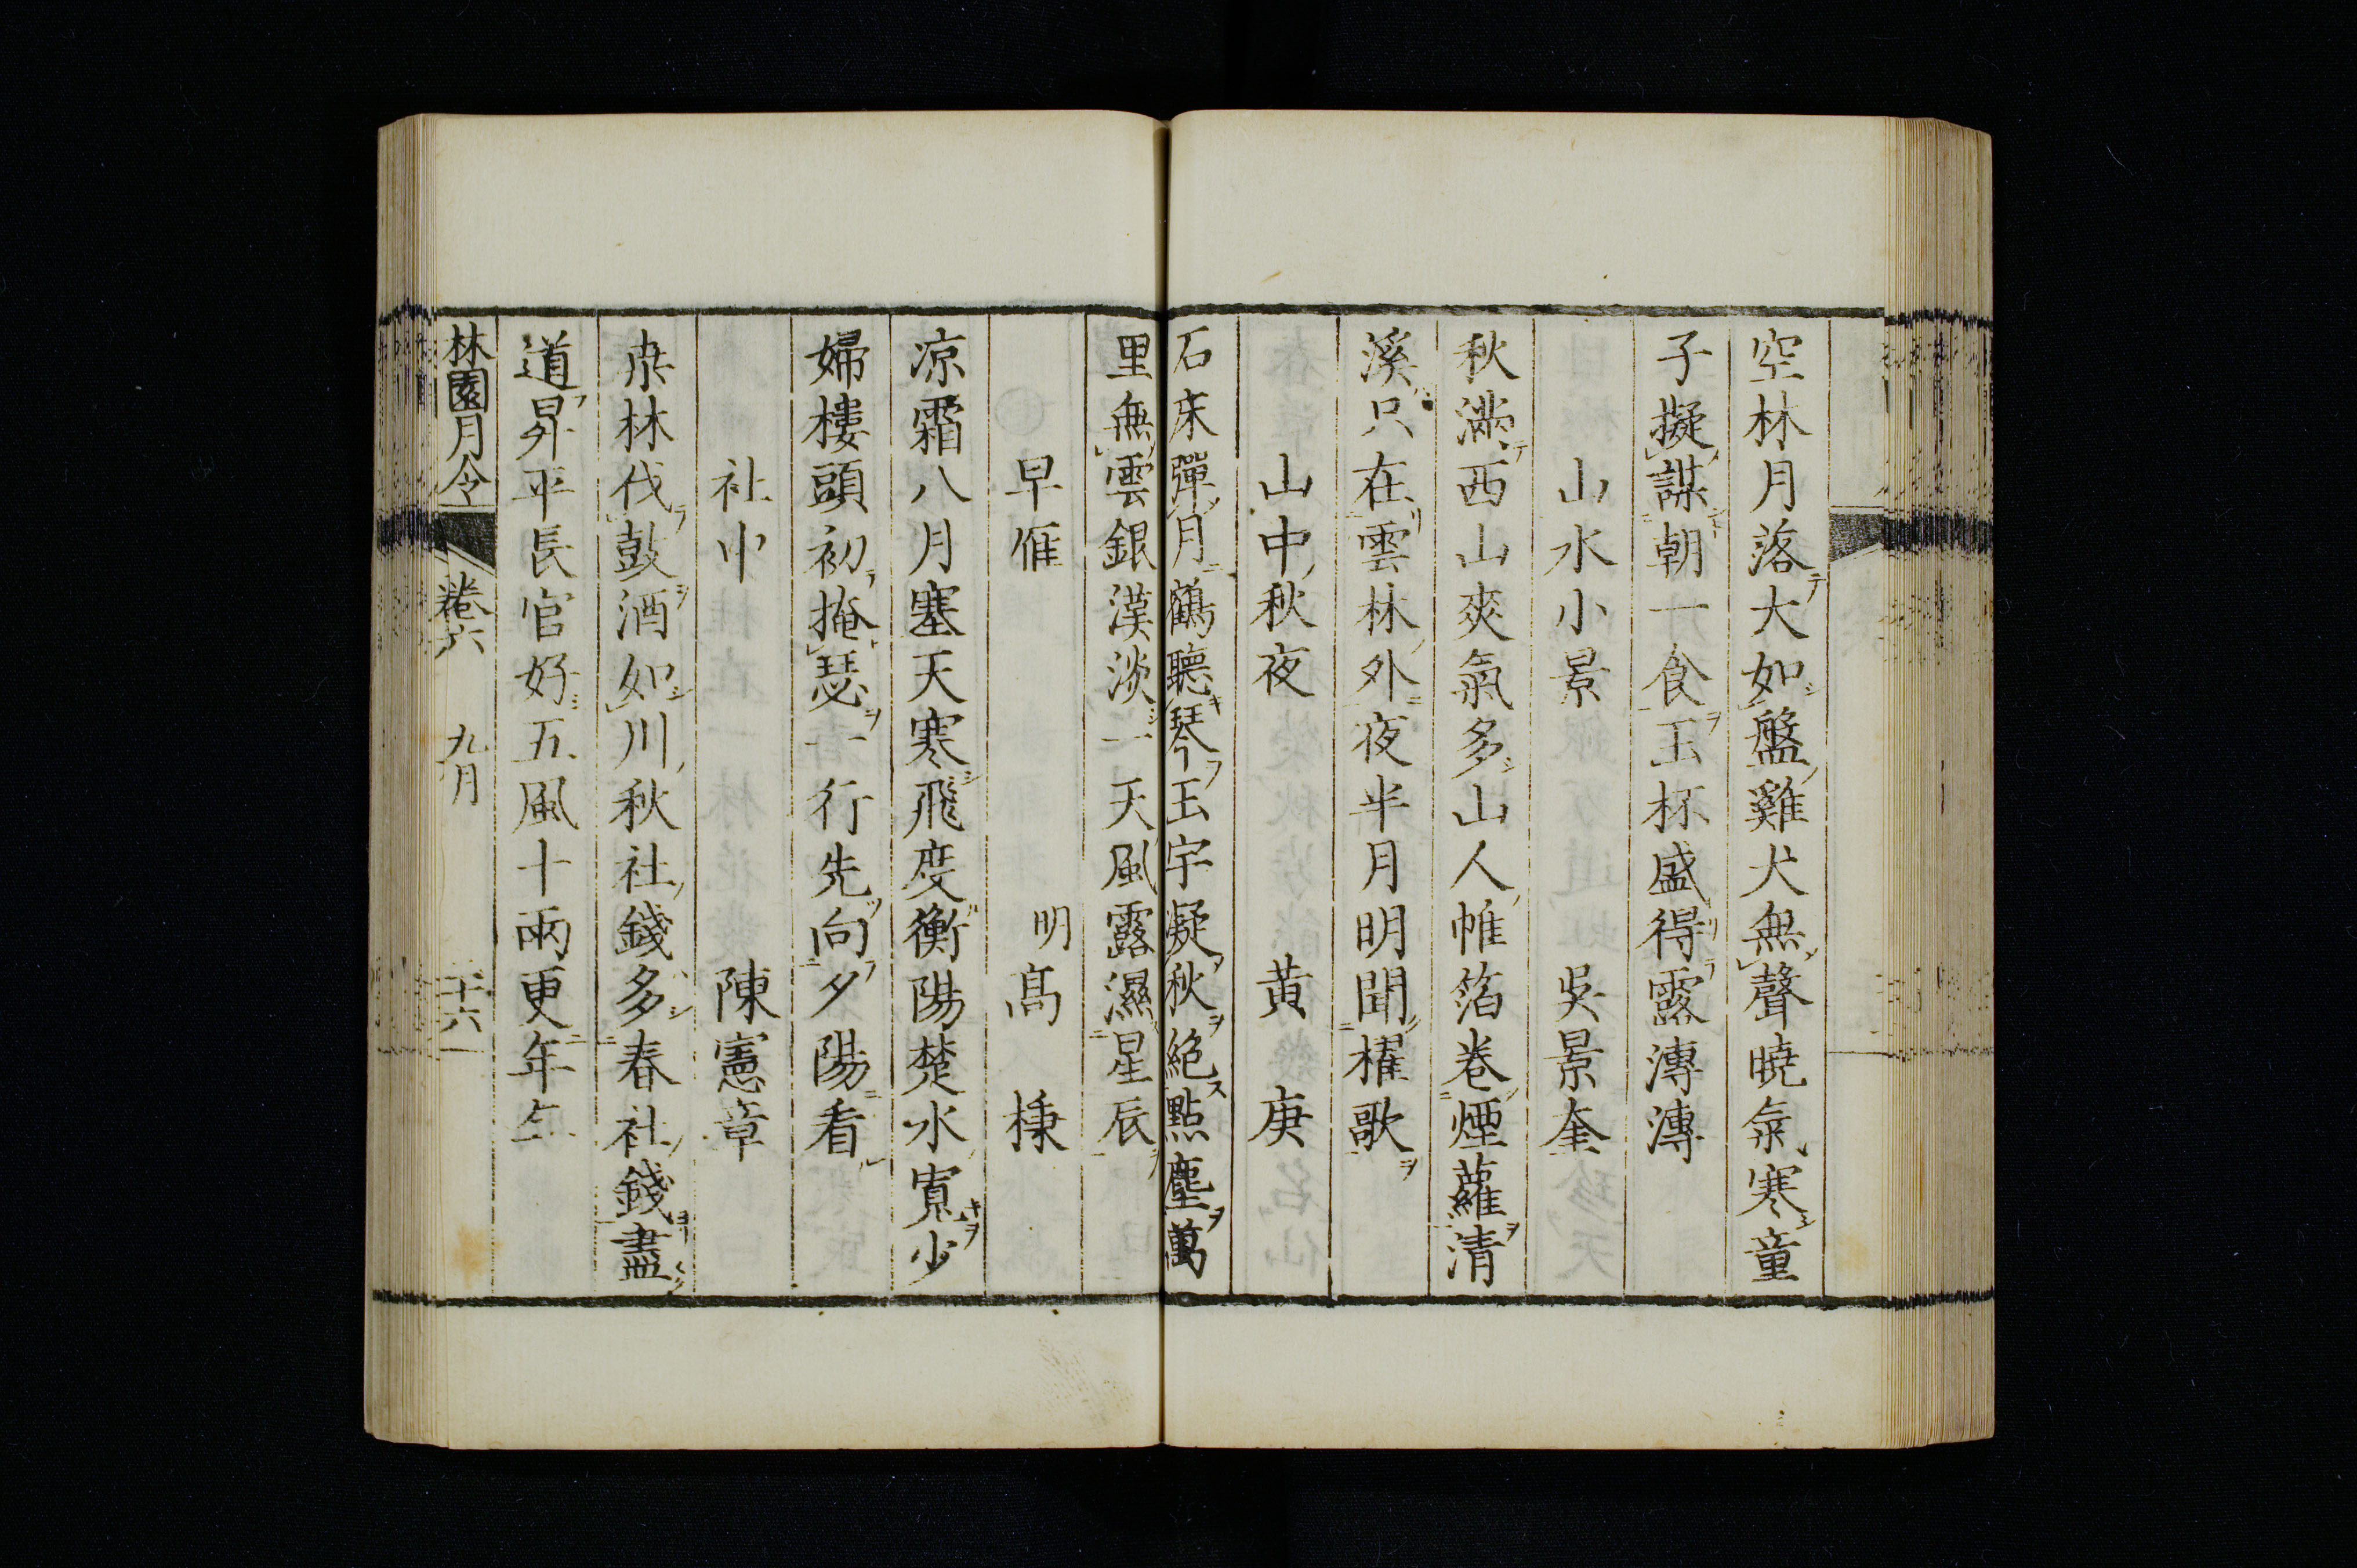 空林月落大如盤雞犬無聲曉氣寒童
子擬謀朝一食玉杯盛得露漙漙
山水小景　吳景奎
秋滿西山爽氣多山人帷箔卷煙蘿清
溪只在雲林外夜半月明聞櫂歌
山中秋夜　黄庚
石床彈月鶴聽琴玉宇凝秋絶點塵萬
里無雲銀漢淡一天風露濕星辰
早雁　明高棅
凉霜八月塞天寒飛度衡陽楚水寬少
婦樓頭初掩瑟一行先向夕陽看
社中　陳憲章
林伐鼓酒如川秋社錢多春社錢盡
道昇平長官好五風十兩更年年
林園月令　卷六　九月　二十六